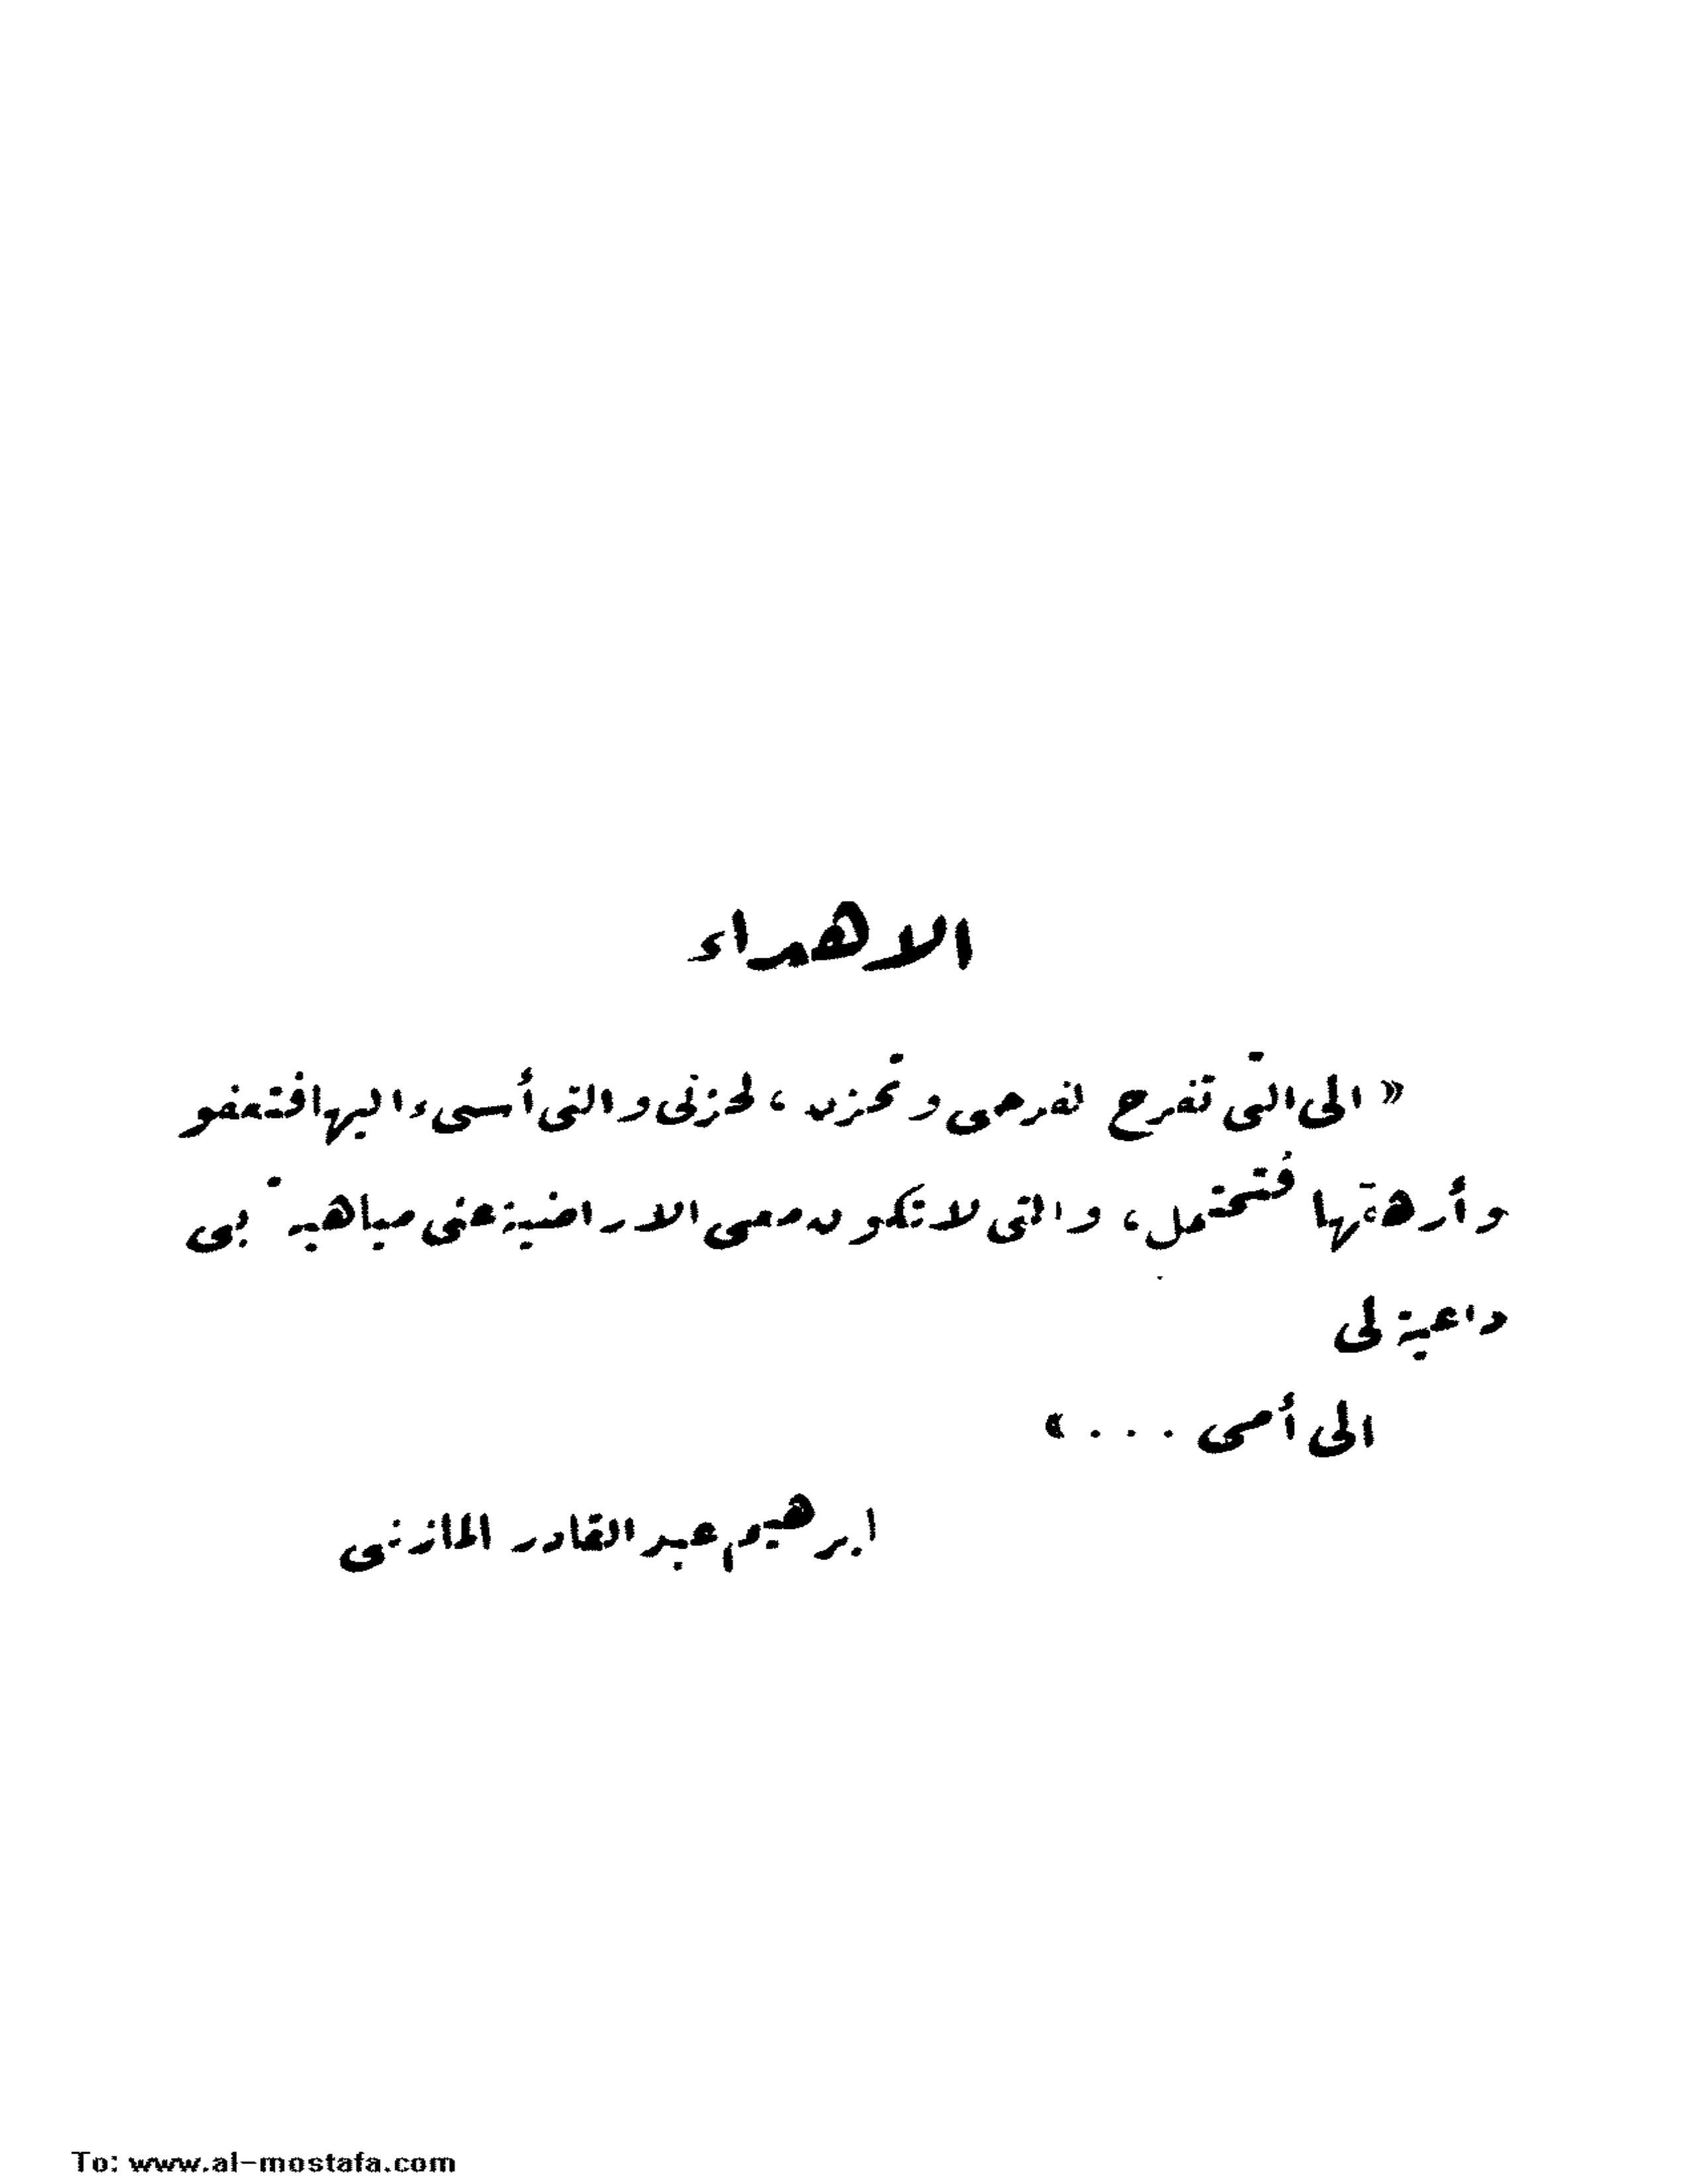 الاهداء
« الى التى تفرح لفرحى وتحزن ، لحزنى والتى أسىء اليها فتعفو
وأرهقها فتحتمل ، والتى لا تكون معى الا راضية عنى مباهية بى
داعية لى
الى أمى . . . »
ابرهيم عبد القادر المازنى
To: www.al-mostafa.com